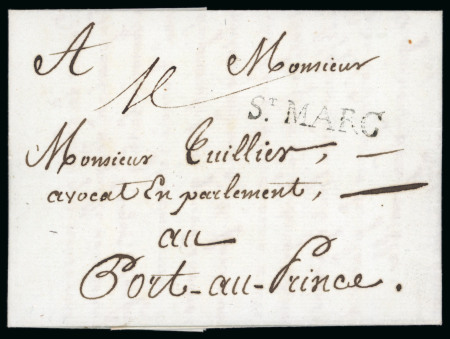 A Monsieur
ST. MARC
Monsieur Tuillier,
avocat En parlement,
au
Port-au-Prince.